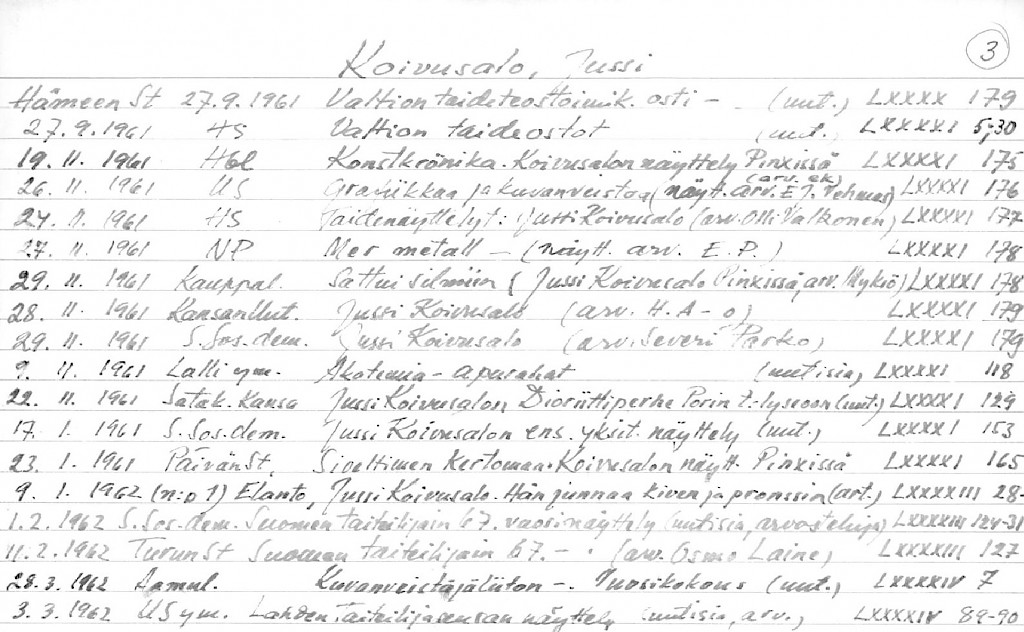 3
Koivusalo, Jussi
Hämeen St 27.9.1961 Valtion taideteostoimik. osti - (uut.) LXXXX 179
27.9.1961 HS Valtion taideostot (uut.) LXXXXI 5,30
19. 11. 1961 Hbl Konstkrönika. Koivusalon näyttely Pinxissä LXXXXI 175
(arv. ek)
26. 11. 1961 US Grafiikkaa ja kuvanveistoa (näytt. arv. E.J. Vehmas) LXXXXI 176
24. 11. 1961 HS Taidenäyttelyt: Jussi Koivusalo (arv. Olli Valkonen) LXXXXI 177
27. 11 1961 NP Mer metall - (näytt. arv. E. P.) LXXXXI 178
29. 11. 1961 Kauppal. Sattui silmiin (Jussi Koivusalo Pinxissä, arv. ) LXXXXI 178
28. 11 1961 Kansan Uut. Jussi Koivusalo (arv. H. A - o) LXXXXI 179
29. 11 1961 S. Sos. dem. Jussi Koivusalo (arv. Severi Parko) LXXXXI 179
9. 11. 1961 Lalli ym. Akatemia-apurahat (uutisia) LXXXXI 118
22. 11. 1961 Satak. Kansa Jussi Koivusalon Dioriittiperhe Porin t.-lyseoon (uut.) LXXXXI 129
17. 1. 1961 S. Sos. dem. Jussi Koivusalon ens. yksit. näyttely (uut.) LXXXXI 153
23. 1. 1961 Päivän St. Siveltimen kertomaa. Koivusalon näytt. Pinxissä LXXXXI 165
9. 1. 1962 (n:o 1) Elanto, Jussi Koivusalo. Hän junnaa kiven ja pronssin (art.) LXXXXIII 28-
1.2. 1962 S. Sos. dem. Suomen taiteilijain 67. vuosinäyttely (uutisia, arvosteluja) LXXXXIII 124-31
11.2.1962 Turun St Suomen taiteilijain 67. - (arv. Osmo Laine) LXXXXIII 127
28.3. 1962 Aamul. Kuvanveistäjäliiton -. Vuosikokous (uut.) LXXXXIV 7
3. 3. 1962 US ym. Lahden taiteilijaseuran näyttely (uutisia, arv.) LXXXXIV 89-90